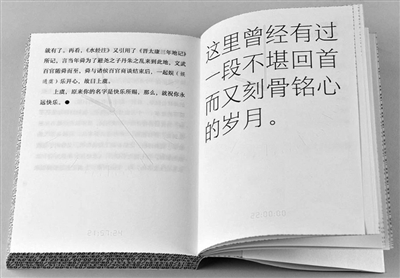 就有了。再看，《水经注》又引用了《晋太康三年地记》
所记，言当年舜为了避尧之子丹朱之乱来到此地，文武
百官随舜而至。舜与诸侯百官商谈结束后，一起娱（娱
通虞）乐开心，故曰上虞。
上虞，原来你的名字是快乐所赐，那么，就祝你永
远快乐。●
这里曾经有过
一段不堪回首
而又刻骨铭心
的岁月。